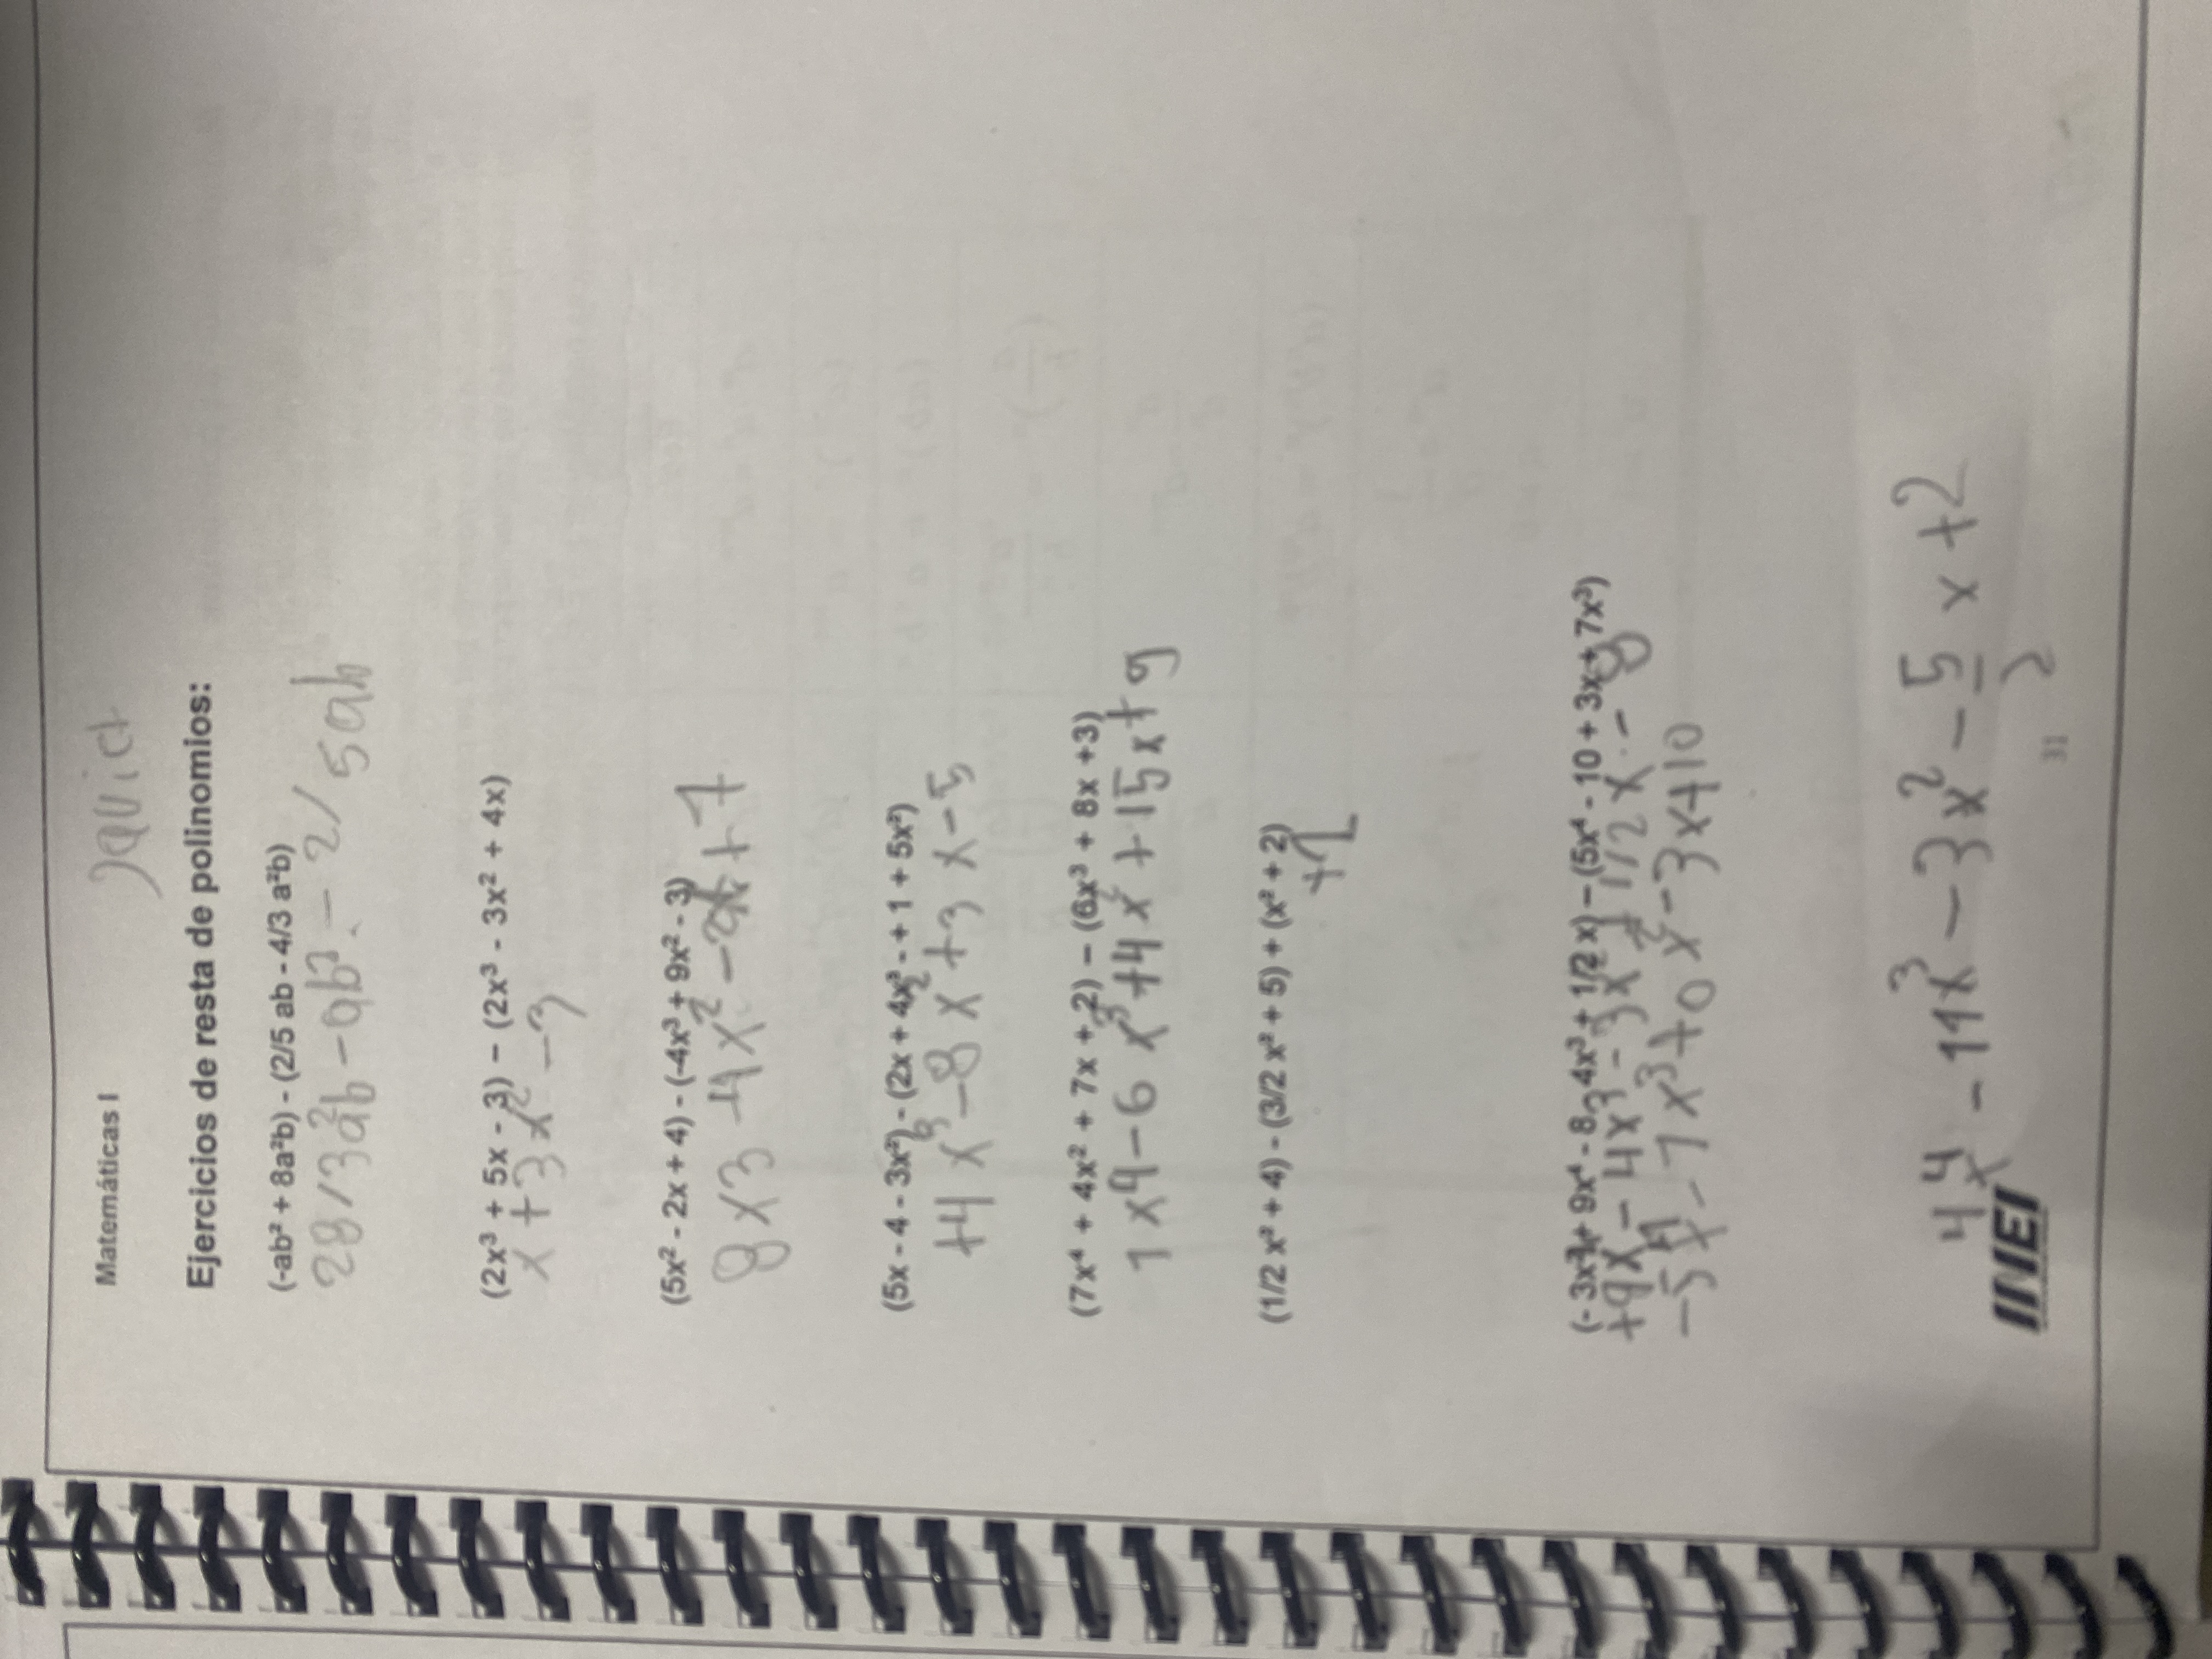 Matemáticas I
Ejercicios de resta de polinomios:
(-ab² + 8a²b) - (2/5 ab - 4/3 a²b)
28/3a²b - ab² - 2/5ab
(2x³ + 5x - 3) – (2x³ - 3x² + 4x)
x + 3x² - 3
(5x² - 2x + 4) - (-4x³ + 9x² - 3)
8x3 - 4x² - 2x + 7
(5x - 4 - 3x²) - (2x + 4x³ - + 1 + 5x²)
+4x³ - 8x² + 3x - 5
(7x⁴ + 4x² + 7x + 2) – (6x³ + 8x +3)
1x4 - 6x³ + 4x² + 15x + 9
(1/2 x² + 4) - (3/2 x² + 5) + (x² + 2)
+1
(- 3x² + 9x⁴ - 8 - 4x³ + 1/2 x) – (5x⁴ - 10 + 3x + 7x³)
+9x⁴ - 4x³ - 3x² + 1/2x - 8
-5x⁴ - 7x³ + 0x² - 3x + 10
4x⁴ - 11x³ - 3x² - 5/2 x + 2
INEI
31